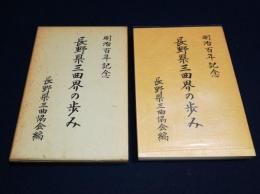 明治百年記念
長野県三曲界の歩み
長野県三曲協会編
明治百年記念
長野県三曲界の歩み
長野県三曲協会編